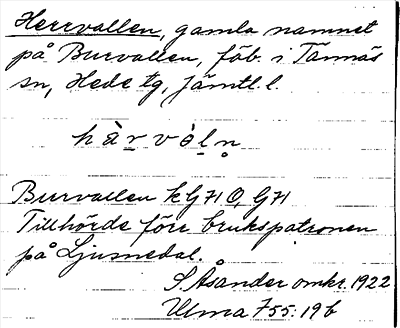 Herrvallen, gamla namnet
på Burvallen, fäb. i Tännäs
sn, Hede tg, Jämtl. l.
hàr vòln
Burvallen k G71 O, G71
Tillhörde förr brukspatronen
på Ljusnedal.
S. Åsander omkr. 1922
Ulma 755:19b